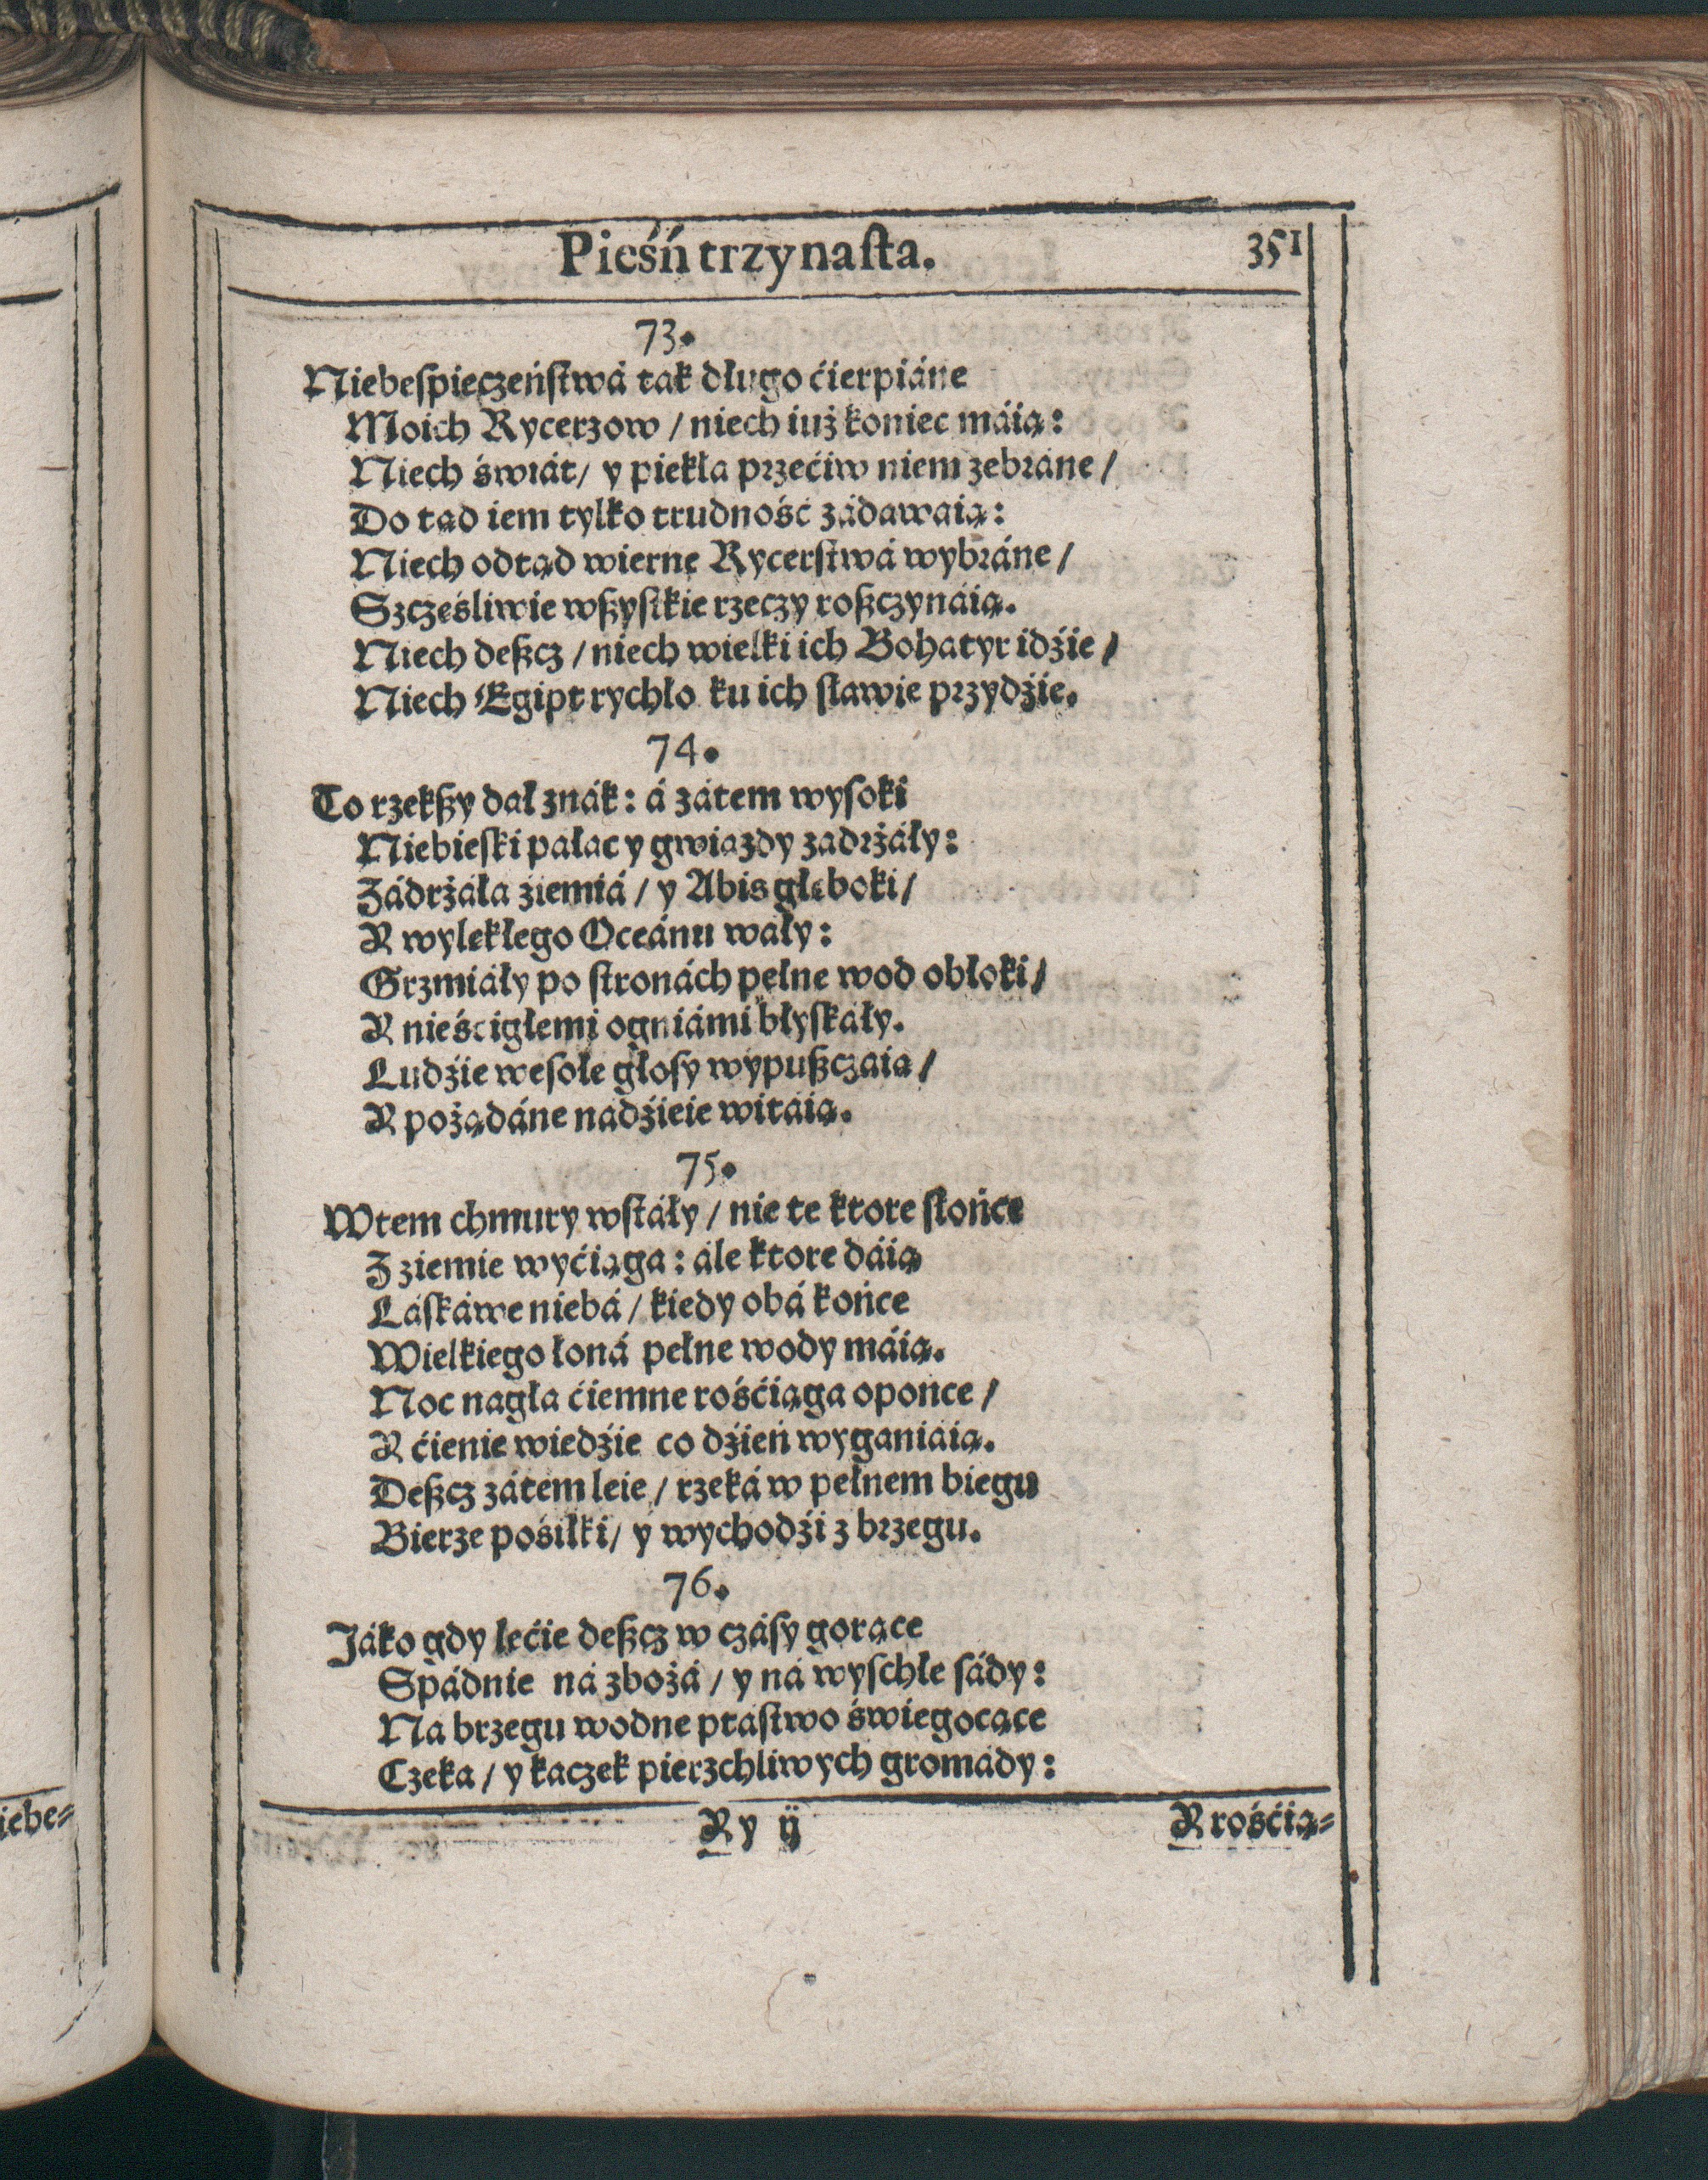 Pieśń trzynaſta. 351
73.
Niebeſpieczeńſtwá ták długo ćierpiáne
Moich Rycerzow / niech iuż koniec máią:
Niech świát / y piekła przećiw niem zebráne /
Do tąd iem tylko trudność zádawáią:
Niech odtąd wierne Rycerſtwá wybráne /
Szczęśliwie wßyſtkie rzeczy roßczynáią.
Niech deßcz / niech wielki ich Bohatyr idźie /
Niech Egipt rychło ku ich ſławie przydźie.
74.
To rzekßy dał znák: á zátem wyſoki
Niebieſki pałac y gwiazdy zadrżáły:
Zádrżáła źiemiá / y Abis głęboki /
Y wylękłego Oceánu wały:
Grzmiáły po ſtronách pełne wod obłoki /
Y nieśćigłemi ogniámi błyſkáły.
Ludźie weſołe głoſy wypußczáią /
Y pożądáne nádźieie witáią.
75.
Wtem chmury wſtáły / nie te ktore ſłońce
Z ziemie wyćiąga: ále ktore dáią
Łáſkáwe niebá / kiedy obá końce
Wielkiego łoná pełne wody máią.
Noc nagła ćiemne rośćiąga oponce /
Y ćienie wiedźie co dźień wyganiáią.
Deßcz zátem leie / rzeká w pełnem biegu
Bierze pośiłki / y wychodźi z brzegu.
76.
Jáko gdy lećie deßcz w czáſy gorące
Spádnie ná zbożá / y ná wyſchłe ſády:
Na brzegu wodne ptaſtwo świegocące
Czeka / y kaczek pierzchliwych gromády:
Yy ij Y rośćią-
iebe-